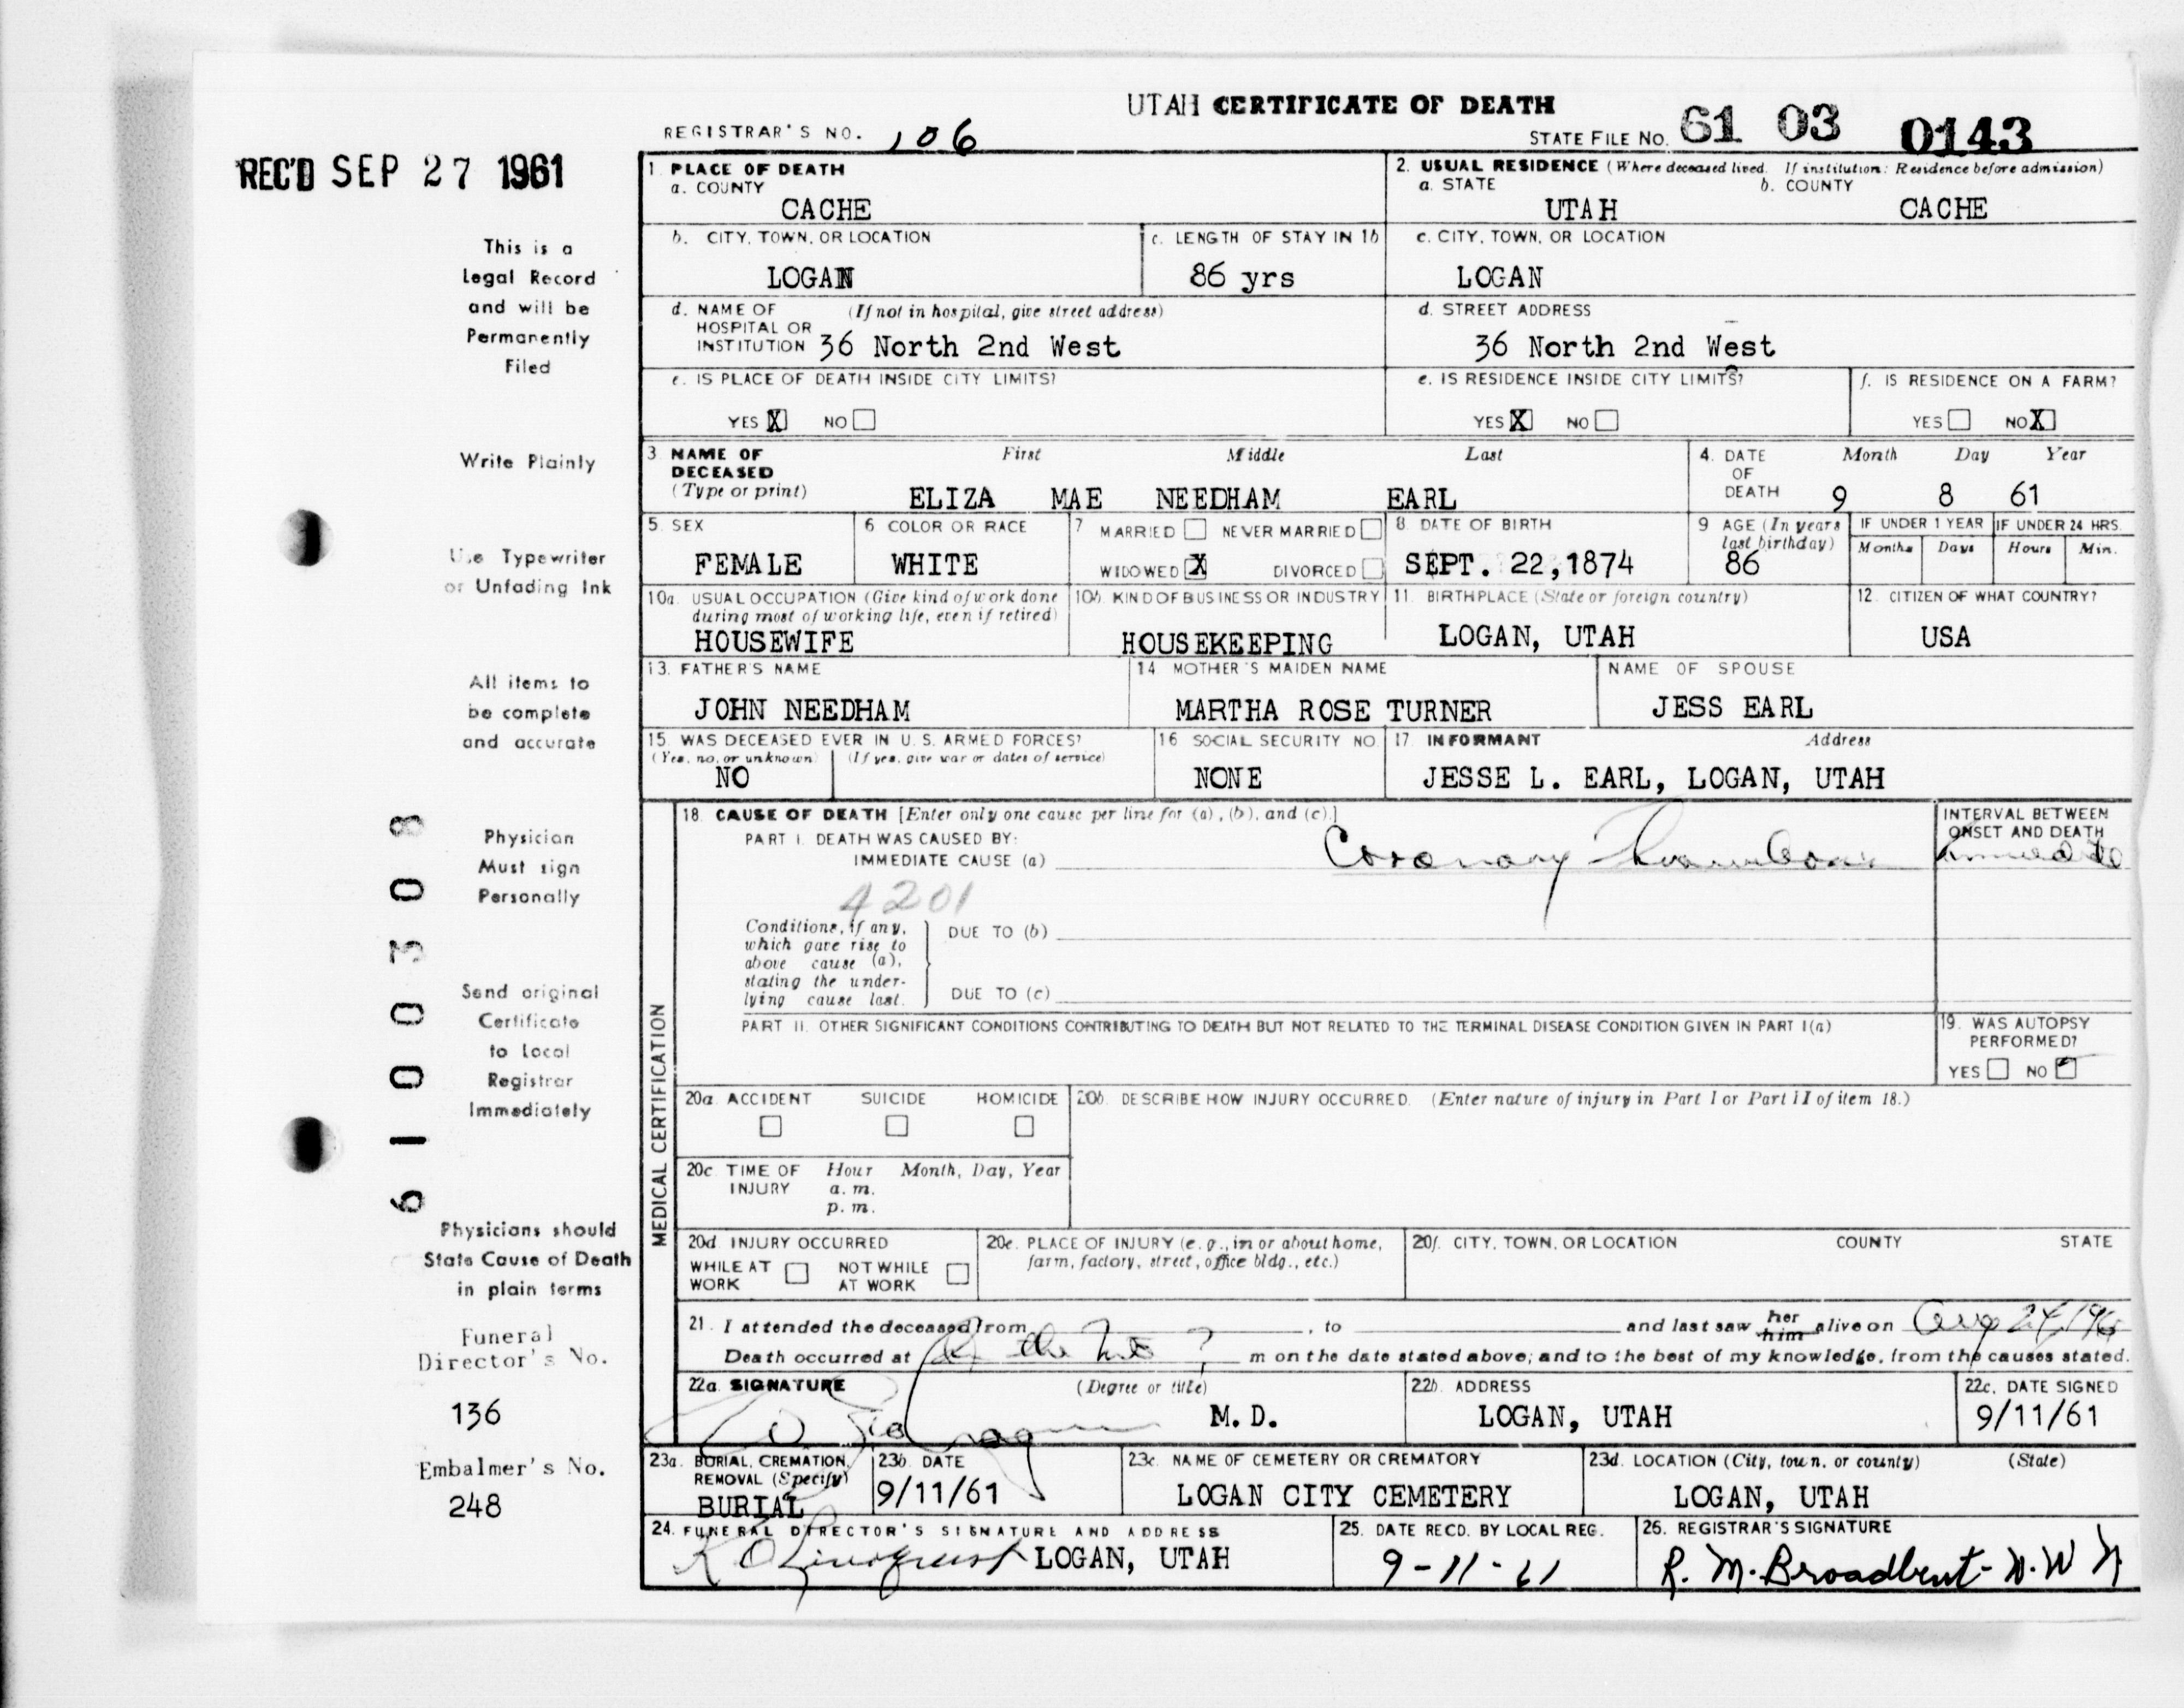 UTAH CERTIFICATE OF DEATH
REGISTRAR'S NO. 106
STATE FILE NO. 61 03 0143
REC'D SEP 27 1961
This is a
Legal Record
and will be
Permanently
Filed
Write Plainly
Use Typewriter
or Unfading Ink
All items to
be complete
and accurate
Physician
Must sign
Personally
Send original
Certificate
to Local
Registrar
Immediately
Physicians should
State Cause of Death
in plain terms
Funeral
Director's No.
136
Embalmer's No.
248
6100308
1. PLACE OF DEATH
a. COUNTY
CACHE
2. USUAL RESIDENCE (Where deceased lived. If institution: Residence before admission)
a. STATE b. COUNTY
UTAH CACHE
b. CITY, TOWN, OR LOCATION
LOGAN
c. LENGTH OF STAY IN 1b
86 yrs
c. CITY, TOWN, OR LOCATION
LOGAN
d. NAME OF (If not in hospital, give street address)
HOSPITAL OR
INSTITUTION 36 North 2nd West
d. STREET ADDRESS
36 North 2nd West
e. IS PLACE OF DEATH INSIDE CITY LIMITS?
YES X NO
e. IS RESIDENCE INSIDE CITY LIMITS?
YES X NO
f. IS RESIDENCE ON A FARM?
YES NO X
3. NAME OF First Middle Last
DECEASED
(Type or print)
ELIZA MAE NEEDHAM EARL
4. DATE Month Day Year
OF
DEATH 9 8 61
5. SEX
FEMALE
6 COLOR OR RACE
WHITE
7 MARRIED NEVER MARRIED
WIDOWED X DIVORCED
8 DATE OF BIRTH
SEPT. 22,1874
9 AGE (In years
last birthday)
86
IF UNDER 1 YEAR
Months Days
IF UNDER 24 HRS.
Hours Min.
10a. USUAL OCCUPATION (Give kind of work done
during most of working life, even if retired)
HOUSEWIFE
10b. KIND OF BUSINESS OR INDUSTRY
HOUSEKEEPING
11. BIRTHPLACE (State or foreign country)
LOGAN, UTAH
12. CITIZEN OF WHAT COUNTRY?
USA
13. FATHER'S NAME
JOHN NEEDHAM
14 MOTHER'S MAIDEN NAME
MARTHA ROSE TURNER
NAME OF SPOUSE
JESS EARL
15. WAS DECEASED EVER IN U. S. ARMED FORCES?
(Yes, no, or unknown) (If yes, give war or dates of service)
NO
16 SOCIAL SECURITY NO.
NONE
17. INFORMANT Address
JESSE L. EARL, LOGAN, UTAH
MEDICAL CERTIFICATION
18. CAUSE OF DEATH [Enter only one cause per line for (a), (b), and (c).]
PART I. DEATH WAS CAUSED BY:
IMMEDIATE CAUSE (a) Coronary Thrombosis
INTERVAL BETWEEN
ONSET AND DEATH
immediate
4201
Conditions, if any,
which gave rise to
above cause (a),
stating the under-
lying cause last.
DUE TO (b)
DUE TO (c)
PART II. OTHER SIGNIFICANT CONDITIONS CONTRIBUTING TO DEATH BUT NOT RELATED TO THE TERMINAL DISEASE CONDITION GIVEN IN PART I(a)
19. WAS AUTOPSY
PERFORMED?
YES NO
20a. ACCIDENT SUICIDE HOMICIDE
20b. DESCRIBE HOW INJURY OCCURRED. (Enter nature of injury in Part I or Part II of item 18.)
20c. TIME OF Hour Month, Day, Year
INJURY a. m.
p. m.
20d. INJURY OCCURRED
WHILE AT NOT WHILE
WORK AT WORK
20e. PLACE OF INJURY (e. g., in or about home,
farm, factory, street, office bldg., etc.)
20f. CITY, TOWN, OR LOCATION COUNTY STATE
21. I attended the deceased from , to and last saw her him alive on Aug 24, 196
Death occurred at m on the date stated above; and to the best of my knowledge, from the causes stated.
22a. SIGNATURE (Degree or title)
M.D.
22b. ADDRESS
LOGAN, UTAH
22c. DATE SIGNED
9/11/61
23a. BURIAL, CREMATION,
REMOVAL (Specify)
BURIAL
23b. DATE
9/11/61
23c. NAME OF CEMETERY OR CREMATORY
LOGAN CITY CEMETERY
23d. LOCATION (City, town, or county) (State)
LOGAN, UTAH
24. FUNERAL DIRECTOR'S SIGNATURE AND ADDRESS
LOGAN, UTAH
25. DATE RECD. BY LOCAL REG.
9-11-61
26. REGISTRAR'S SIGNATURE
R. M. Broadbent